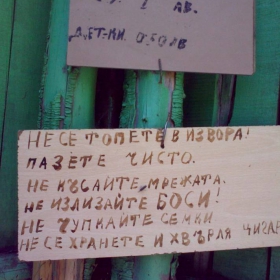 1 ЛВ.
ДЕТСКИ 0.50 ЛВ
НЕ СЕ ТОПЕТЕ В ИЗВОРА!
ПАЗЕТЕ ЧИСТО.
НЕ КЪСАЙТЕ МРЕЖАТА.
НЕ ИЗЛИЗАЙТЕ БОСИ!
НЕ ЧУПКАЙТЕ СЕМКИ
НЕ СЕ ХРАНЕТЕ И ХВЪРЛЯ